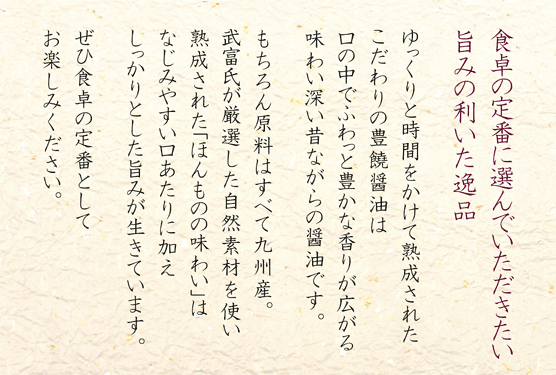 食卓の定番に選んでいただきたい
旨みの利いた逸品
ゆっくりと時間をかけて熟成された
こだわりの豊饒醤油は
口の中でふわっと豊かな香りが広がる
味わい深い昔ながらの醤油です。
もちろん原料はすべて九州産。
武富氏が厳選した自然素材を使い
熟成された「ほんものの味わい」は
なじみやすい口あたりに加え
しっかりとした旨みが生きています。
ぜひ食卓の定番として
お楽しみください。